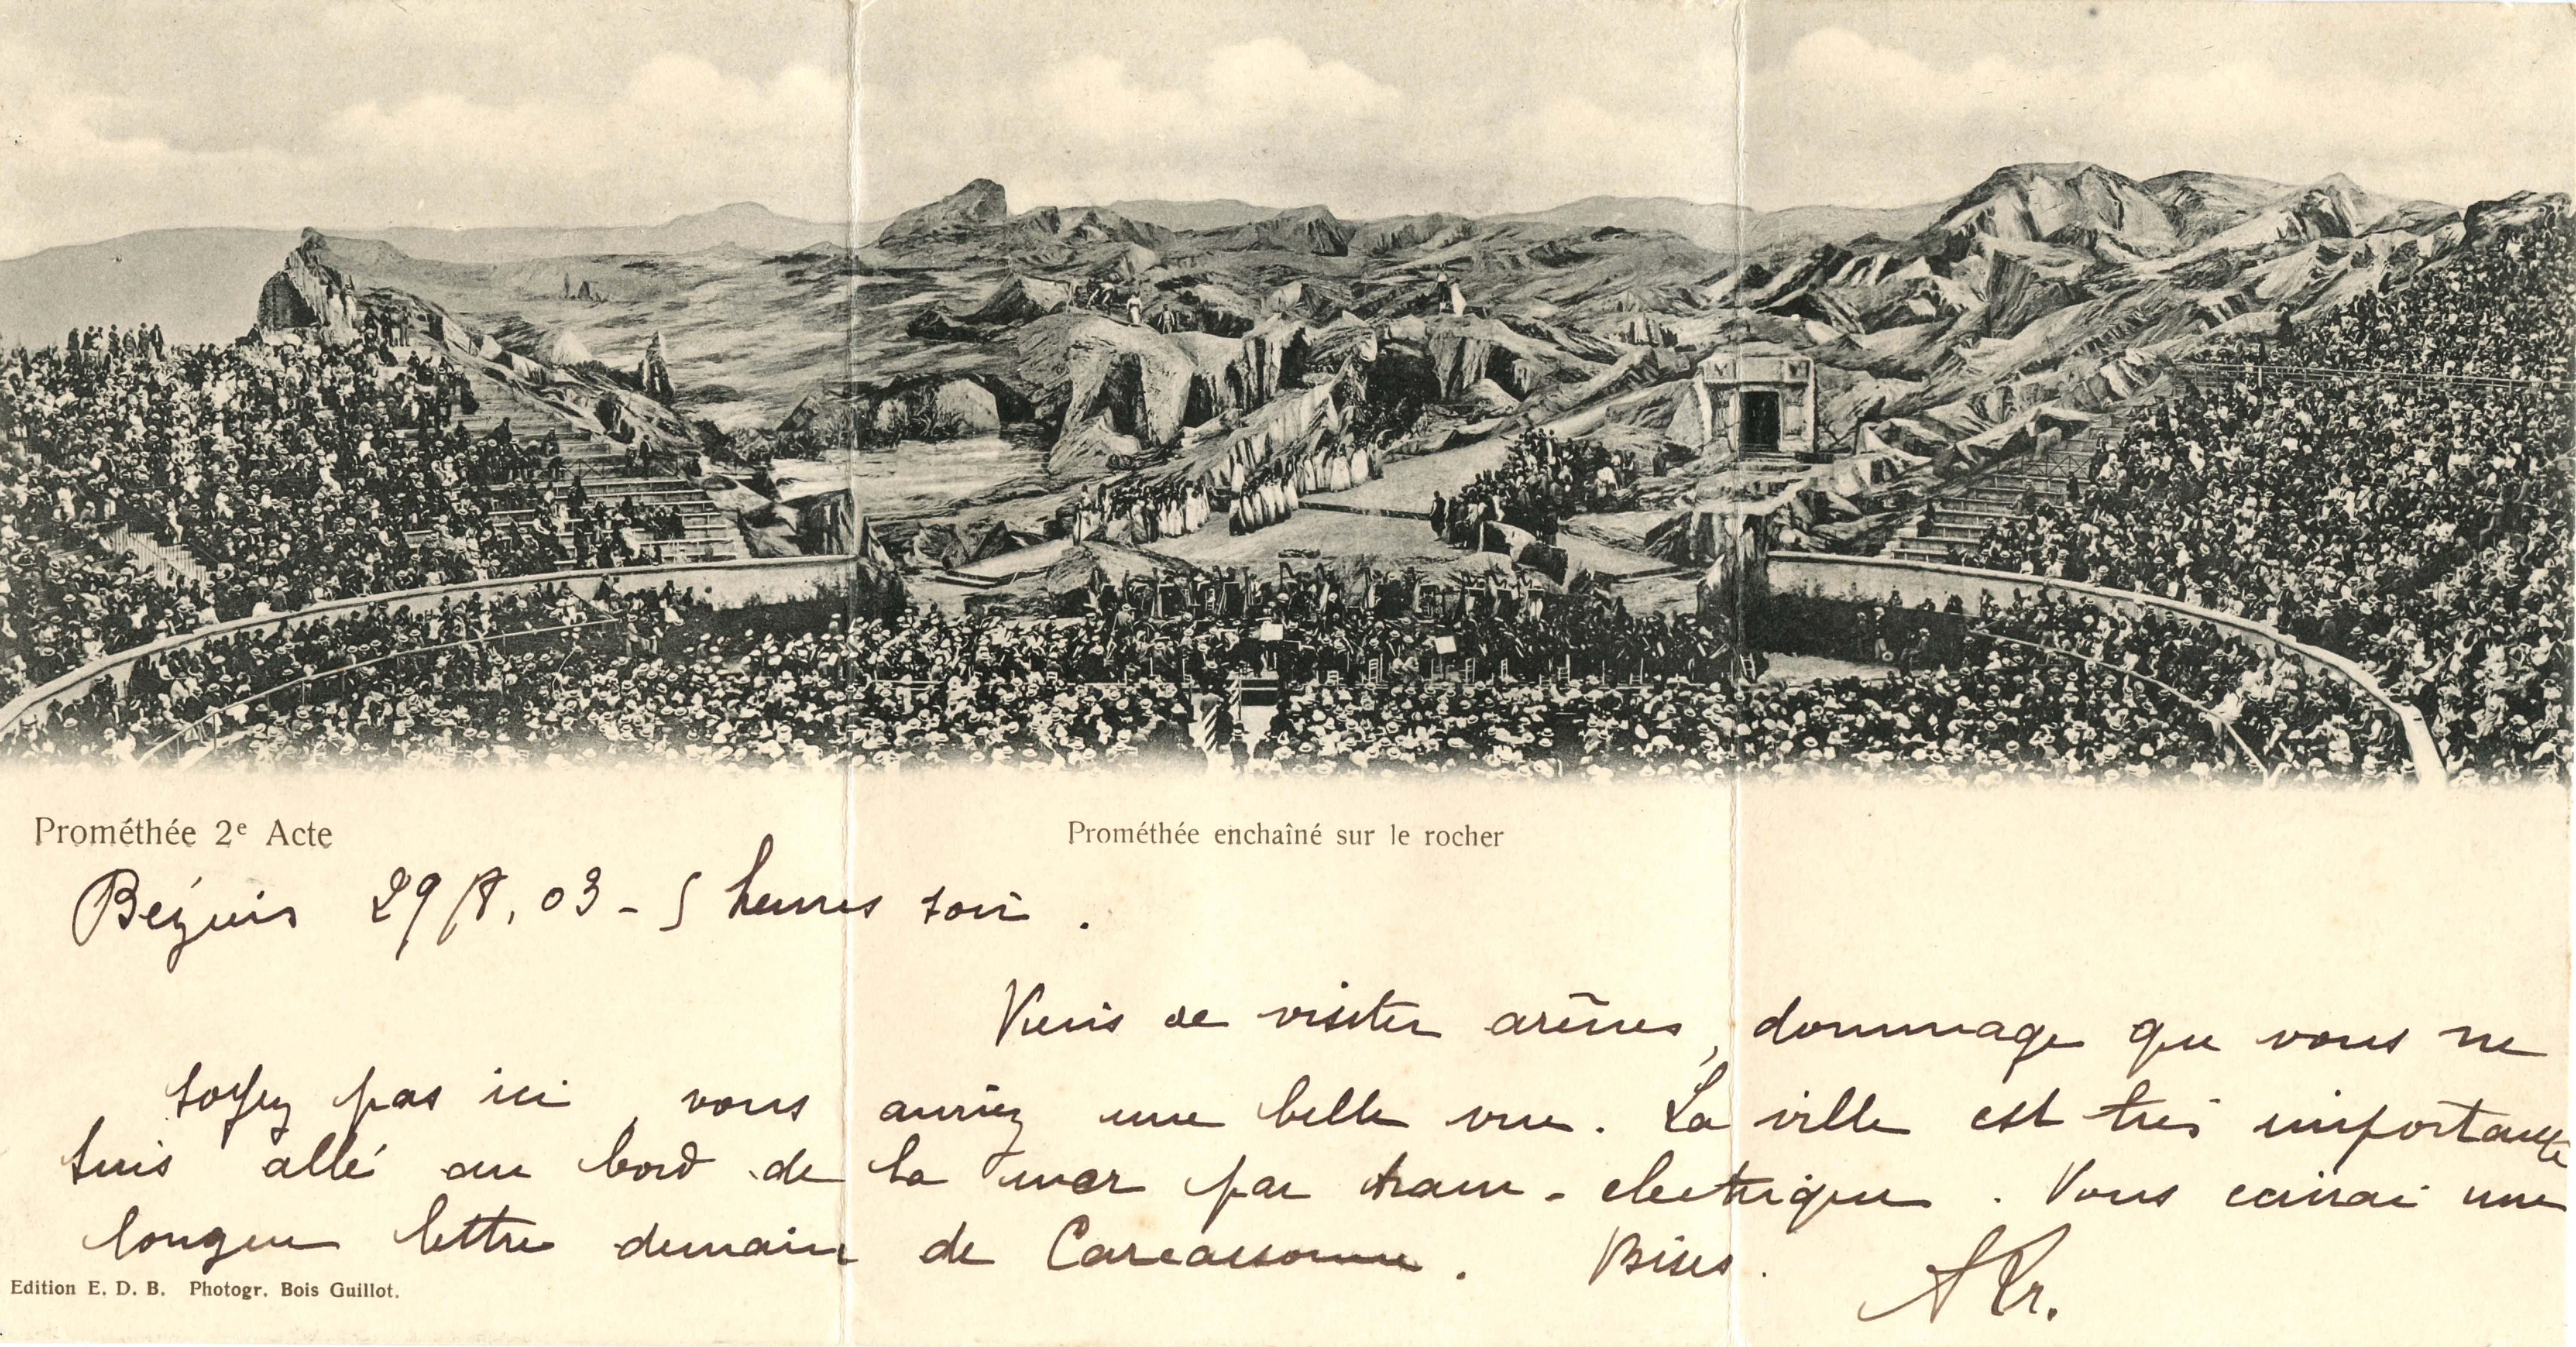 Prométhée 2e Acte
Prométhée enchaîné sur le rocher
Béziers 29/8.03 - 5 heures soir.
Viens de visiter arènes, dommage que vous ne
soyez pas ici, vous auriez une belle vue. La ville est très importante
suis allé au bord de la mer par tram-electrique. Vous ecrirai une
longue lettre demain de Carcassonne. Bises.
Edition E. D. B. Photogr. Bois Guillot.